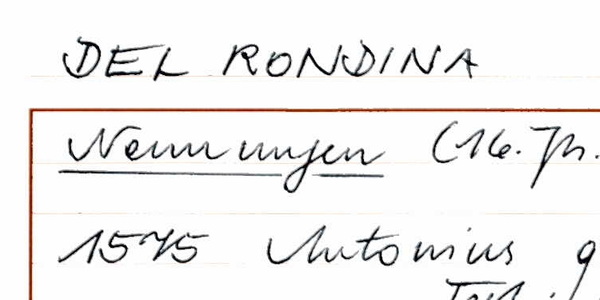 DEL RONDINA
Nennungen (16. Jh.
1575 Antonius q